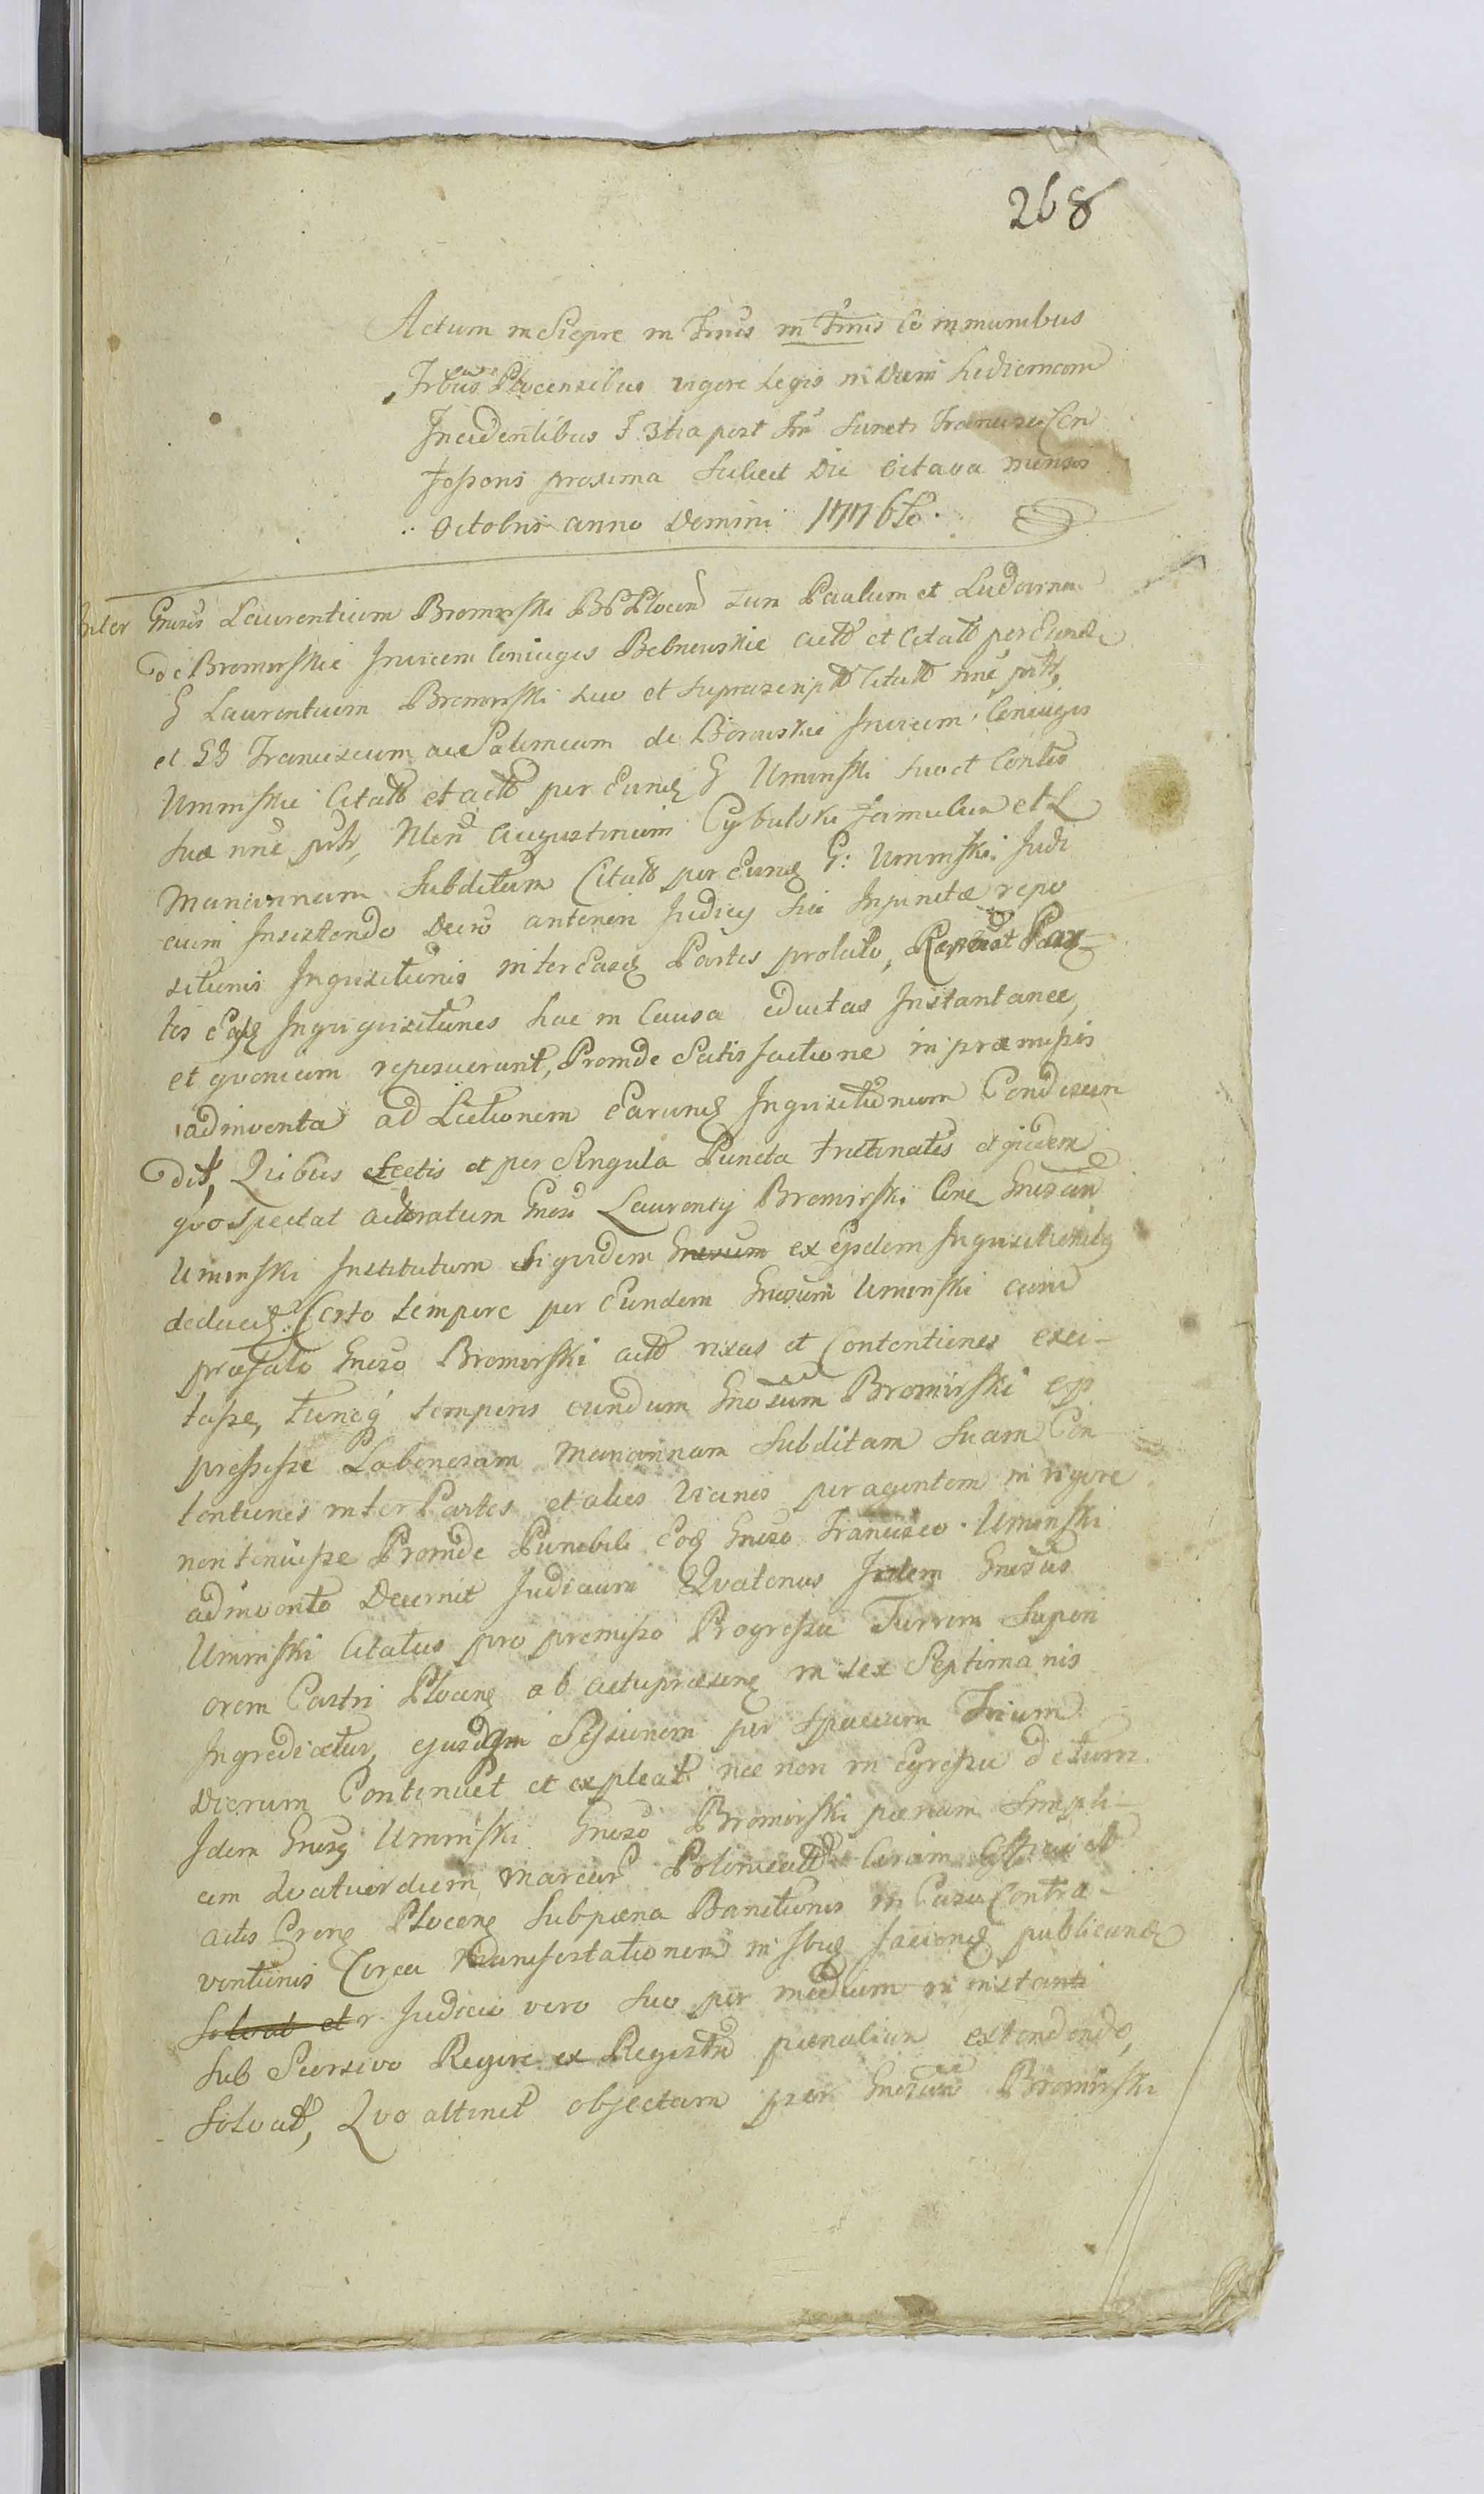 268
Actum in Siepre in Tmis in Tmis Communibus
Tribus Plocensibus vigore Legis in Diem hodiernam
Incidentibus F. 3tia post Fm Sancti Francisci Con
fessoris proxima Scilicet Die Octava mensis
Octobris anno Domini 1776to.
Inter Gnosus Laurentium Bromirski BP Plocen tum Paulum et Ludovina
de Bromirskie Invicem Coniuges Bebnowskie actt et Citatt per Eund
G Laurentium Bromirski suo et suprascriptt Citatt nne prtt,
et GG Franciscum ac Salomeam de Borowskie Invicem Coniuges
Uminskie Citatt et actt per Eund G Uminski suo et Contis
suae nne prtt, Nlem Augustinum Cybulski famulum et L
Mariannam Subditam Citatt per Eund G: Uminski Judi
cium Insistendo Decro anteriori Judicij sui Injunctae repo
sitionis Inquisitionis inter Easd Partes prolato, Par-
tes Easd Inquiquisitiones hac in Causa eductas Instantanee,
et quoniam reposuerunt, Proinde Satisfactione in praemissis
adinventa ad Lectionem Earund Inquisitionum Condescen
dit, Quibus Lectis et per Singula Puncta trutinatis et quidem
quo spectat actoratum Gnosi Laurentij Bromirski Cone Gnosum
Uminski Institutum Siquidem Gnosum ex ejsdem Inquisitionibq
deducit Certo tempore per Eundem Gnosum Uminski cum
praefato Gnoso Bromirski actt rixas et Contentiones exci-
tasse, tuncq tempores eundum Gnosum Bromirski ex
pressisse Laboriosam Mariannam Subditam Suam Con
tentiones inter Partes et alios Vicinos peragentem in rigore
non tenuisse Proinde Punibili Eod Gnoso Francisco Uminski
adinvento Decernit Judicium Quatenus Idem Gnosus
Uminski Citatus pro premisso Progressu Turrim Superi
orem Castri Plocens ab actu praesens in sex Septimanis
Ingrediatur, ejusdqm Sessionem per spacium Trium
Dierum Continuet et expleat nec non in Egressu de turri
Idem Gnosq Uminski Gnoso Bromirski paenam Simpli-
cem Quatuordecim Marcar Polonicatt Coram
actis Prens Plocens Sub paena Banitionis in Casu Contra-
ventionis Circa manifestationem in Ibq faciend publicand
Solvat et r Judicio vero suo per medium in instanti
Sub Scorsivo Rigore ex Registro paenalium extendendo,
Solvat, Quo attinet objectam per Gnosum Bromirski